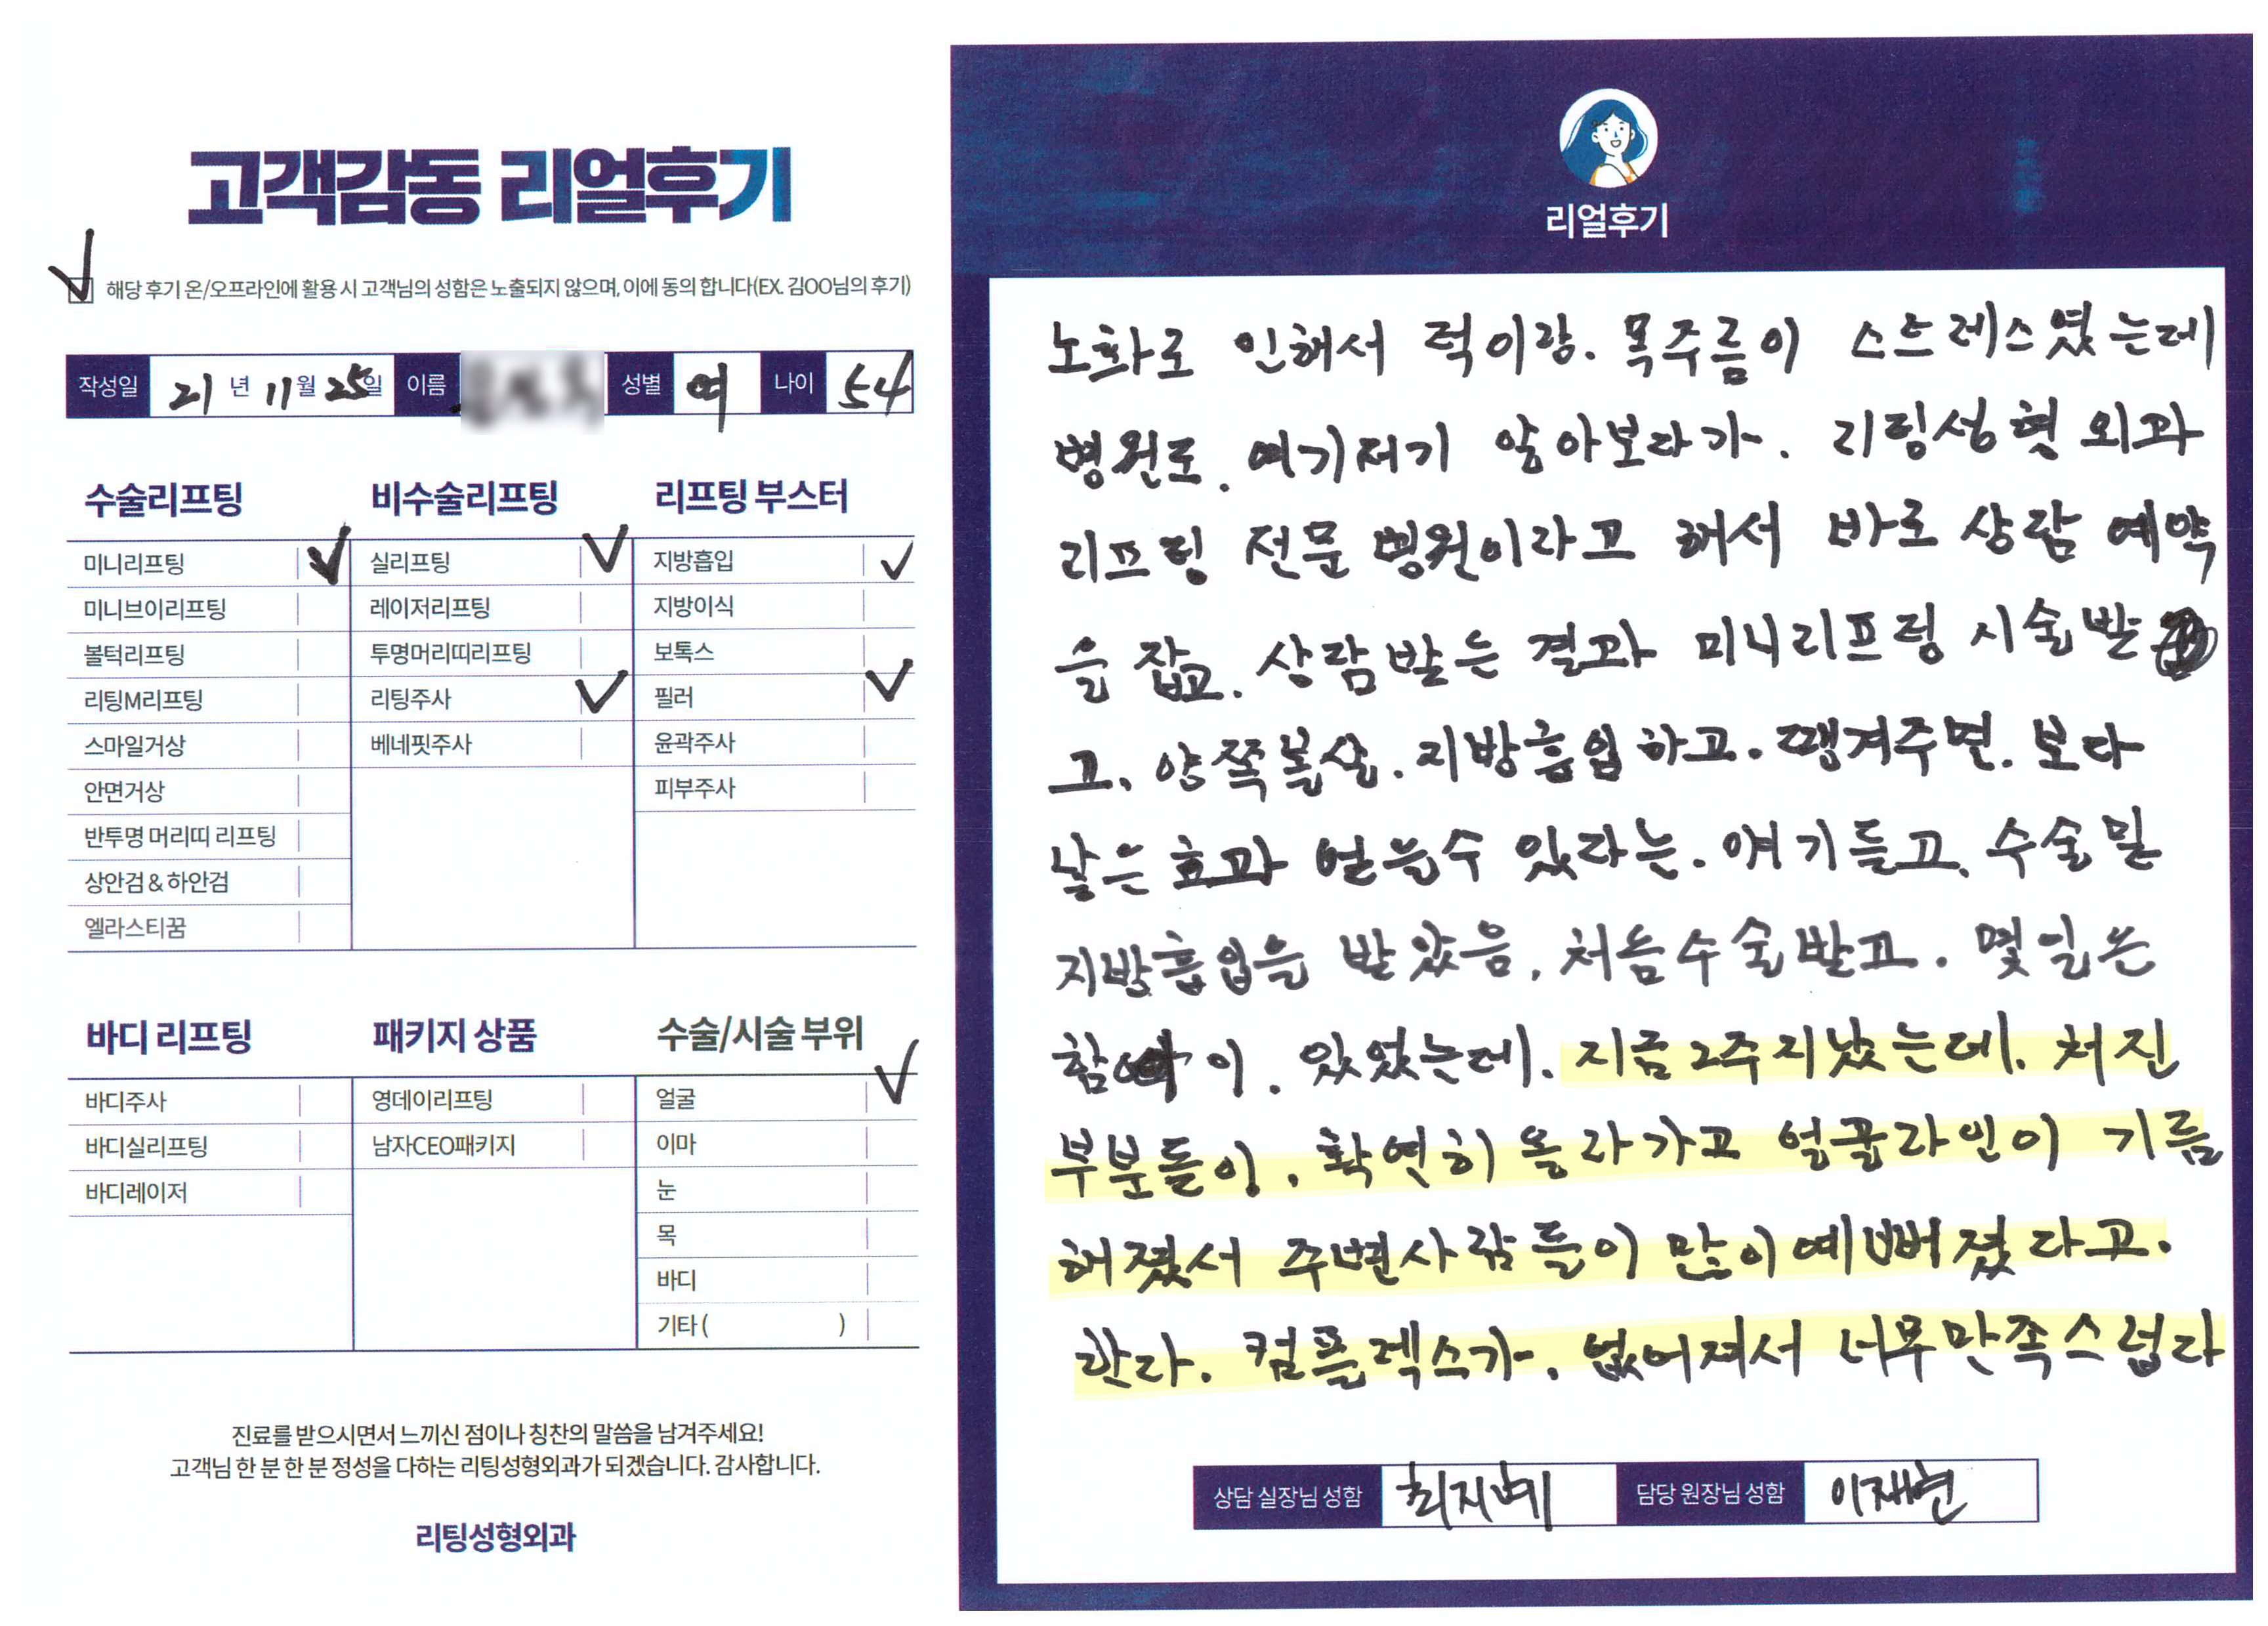 고객감동 리얼후기
해당 후기 온/오프라인에 활용 시 고객님의 성함은 노출되지 않으며, 이에 동의 합니다(EX. 김OO님의 후기)
작성일 21년 11월 25일 이름 성별 여 나이 54
수술리프팅
미니리프팅
미니브이리프팅
볼턱리프팅
리팅M리프팅
스마일거상
안면거상
반투명 머리띠 리프팅
상안검&하안검
엘라스티꿈
비수술리프팅
실리프팅
레이저리프팅
투명머리띠리프팅
리팅주사
베네핏주사
리프팅 부스터
지방흡입
지방이식
보톡스
필러
윤곽주사
피부주사
바디 리프팅
바디주사
바디실리프팅
바디레이저
패키지 상품
영데이리프팅
남자CEO패키지
수술/시술 부위
얼굴
이마
눈
목
바디
기타( )
진료를 받으시면서 느끼신 점이나 칭찬의 말씀을 남겨주세요!
고객님 한 분 한 분 정성을 다하는 리팅성형외과가 되겠습니다. 감사합니다.
리팅성형외과
리얼후기
노화로 인해서 턱이랑. 목주름이 스트레스였는데
병원도. 여기저기 알아보다가. 리팅성형외과
리프팅 전문 병원이라고 해서 바로 상담 예약
을 잡고. 상담받은 결과 미니리프팅 시술받
고, 양쪽볼살. 지방흡입하고. 땡겨주면. 보다
낳은 효과 얻을수 있다는. 얘기듣고, 수술 및
지방흡입을 받았음, 처음수술받고. 몇일은
함이. 있었는데. 지금 2주지났는데. 처진
부분들이. 확연히 올라가고 얼굴라인이 기름
해졌서 주변사람들이 많이예뻐졌다고.
한다. 컴플렉스가. 없어져서 너무만족스럽다
상담 실장님 성함 담당 원장님 성함 이재현